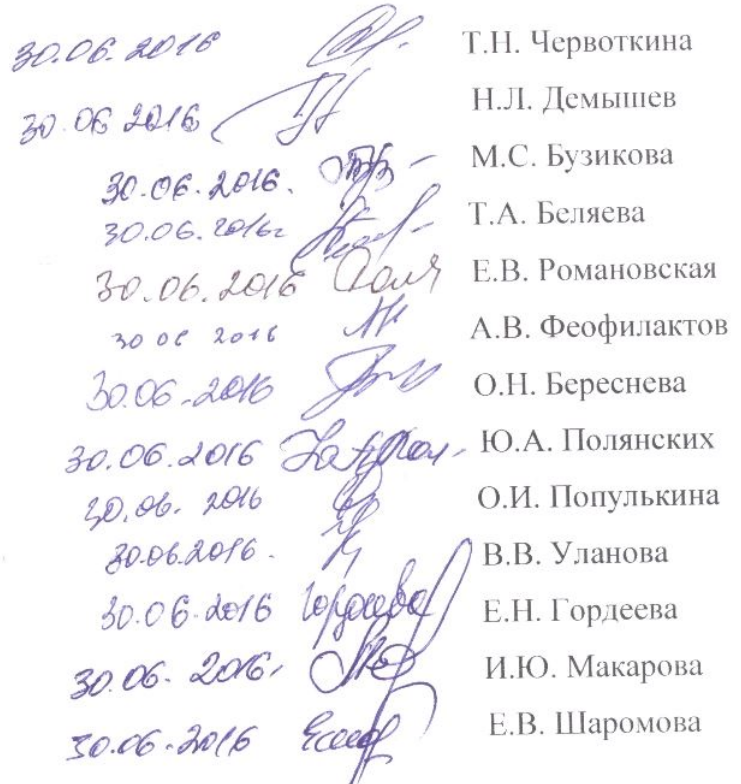 30.06.2016 Т.Н. Червоткина
30.06 2016 Н.Л. Демышев
30.06.2016. М.С. Бузикова
30.06.2016г Т.А. Беляева
30.06.2016 Е.В. Романовская
30 06 2016 А.В. Феофилактов
30.06.2016 О.Н. Береснева
30.06.2016 Ю.А. Полянских
30.06.2016 О.И. Популькина
30.06.2016. В.В. Уланова
30.06.2016 Гордеева Е.Н. Гордеева
30.06.2016, И.Ю. Макарова
30.06.2016 Е.В. Шаромова